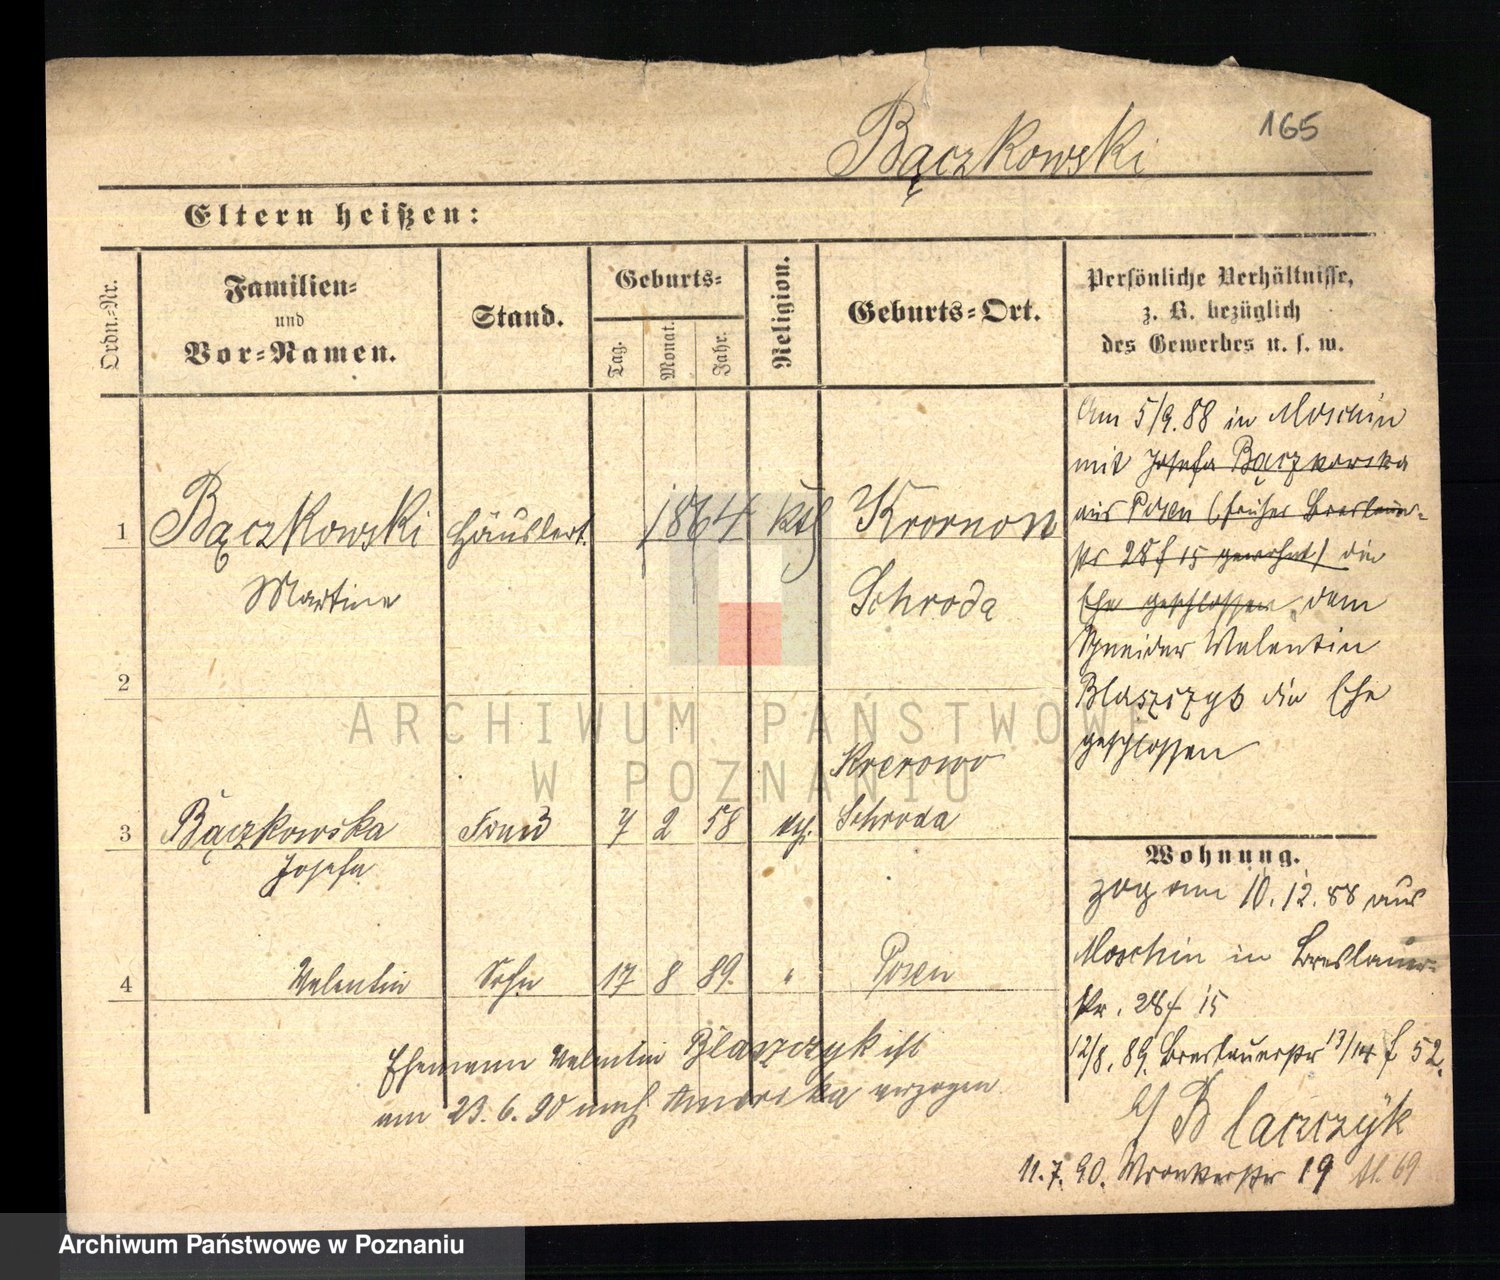 165
Bączkowski
Eltern heißen:
Ordn.-Nr.
Familien-
und
Vor-Namen.
Stand.
Geburts-
Tag.
Monat.
Jahr.
Religion.
Geburts-Ort.
Persönliche Verhältnisse,
z. B. bezüglich
des Gewerbes u. s. w.
1
Bączkowski
Martin
1864
Schroda
2
3
Bączkowska
Josefa
7 2 58
Krerowo
Schroda
4
Valentin
Sohn
17 8 89.
"
Posen
Ehemann Valentin Blaszczyk ist
am 23.6.90 nach Amerika verzogen
Am 5/9.88 in Moschin
mit Josefa Bączkowska
aus Posen (früher Breslauer-
str 28 f 15 gewohnt) die
Ehe geschlossen dem
Valentin
Blaszczyk die Ehe
geschlossen
Wohnung.
zog am 10.12.88 aus
Moschin in Breslauer-
str. 28 f 15
12/8.89. Breslauerstr 13/14 f 52.
Blaczczÿk
11.7.90. Wronkerstr 19 69
ARCHIWUM PAŃSTWOWE
W POZNANIU
Archiwum Państwowe w Poznaniu